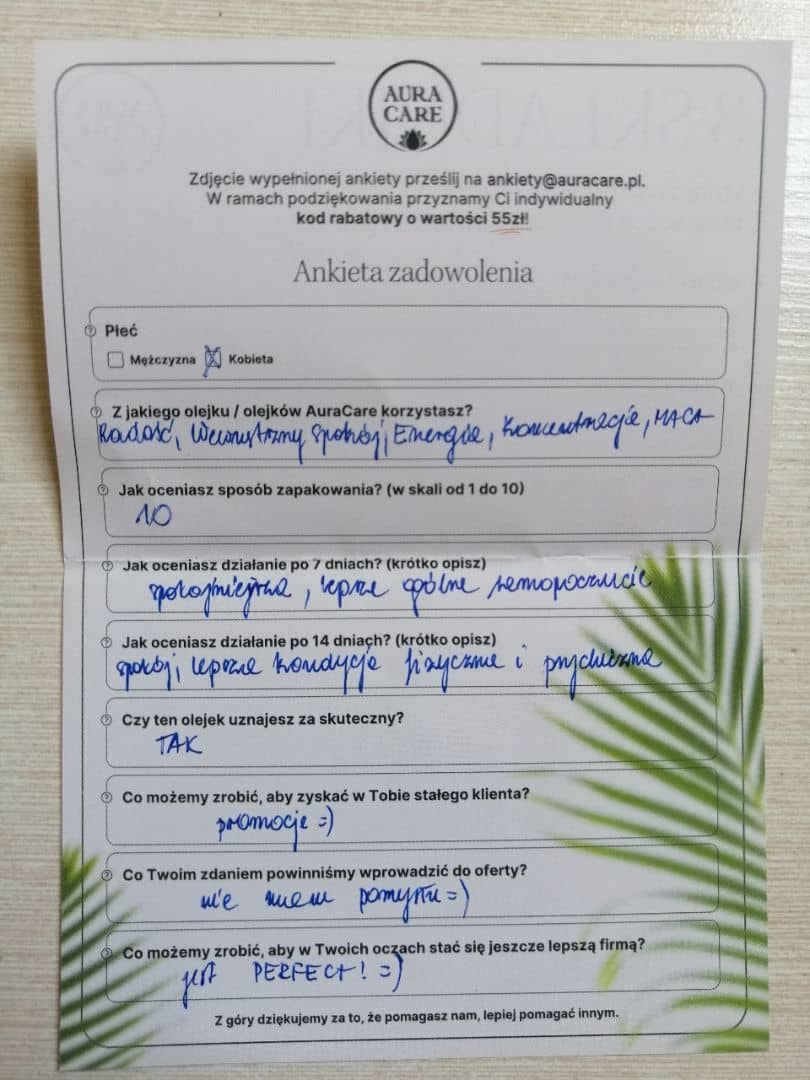 AURA
CARE
Zdjęcie wypełnionej ankiety prześlij na ankiety@auracare.pl.
W ramach podziękowania przyznamy Ci indywidualny
kod rabatowy o wartości 55zł!
Ankieta zadowolenia
Płeć
Mężczyzna Kobieta
Z jakiego olejku / olejków AuraCare korzystasz?
Radość, Wewnętrzny spokój, Energia, Koncentracja, MACA
Jak oceniasz sposób zapakowania? (w skali od 1 do 10)
10
Jak oceniasz działanie po 7 dniach? (krótko opisz)
spokojniejsza, lepsze ogólne samopoczucie
Jak oceniasz działanie po 14 dniach? (krótko opisz)
spokój, lepsza kondycja fizyczna i psychiczna
Czy ten olejek uznajesz za skuteczny?
TAK
Co możemy zrobić, aby zyskać w Tobie stałego klienta?
promocje =)
Co Twoim zdaniem powinniśmy wprowadzić do oferty?
nie mam pomysłu =)
Co możemy zrobić, aby w Twoich oczach stać się jeszcze lepszą firmą?
jest PERFECT! =)
Z góry dziękujemy za to, że pomagasz nam, lepiej pomagać innym.